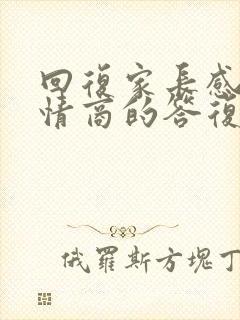 回復家長感
情商的答復
俄羅斯方塊丁